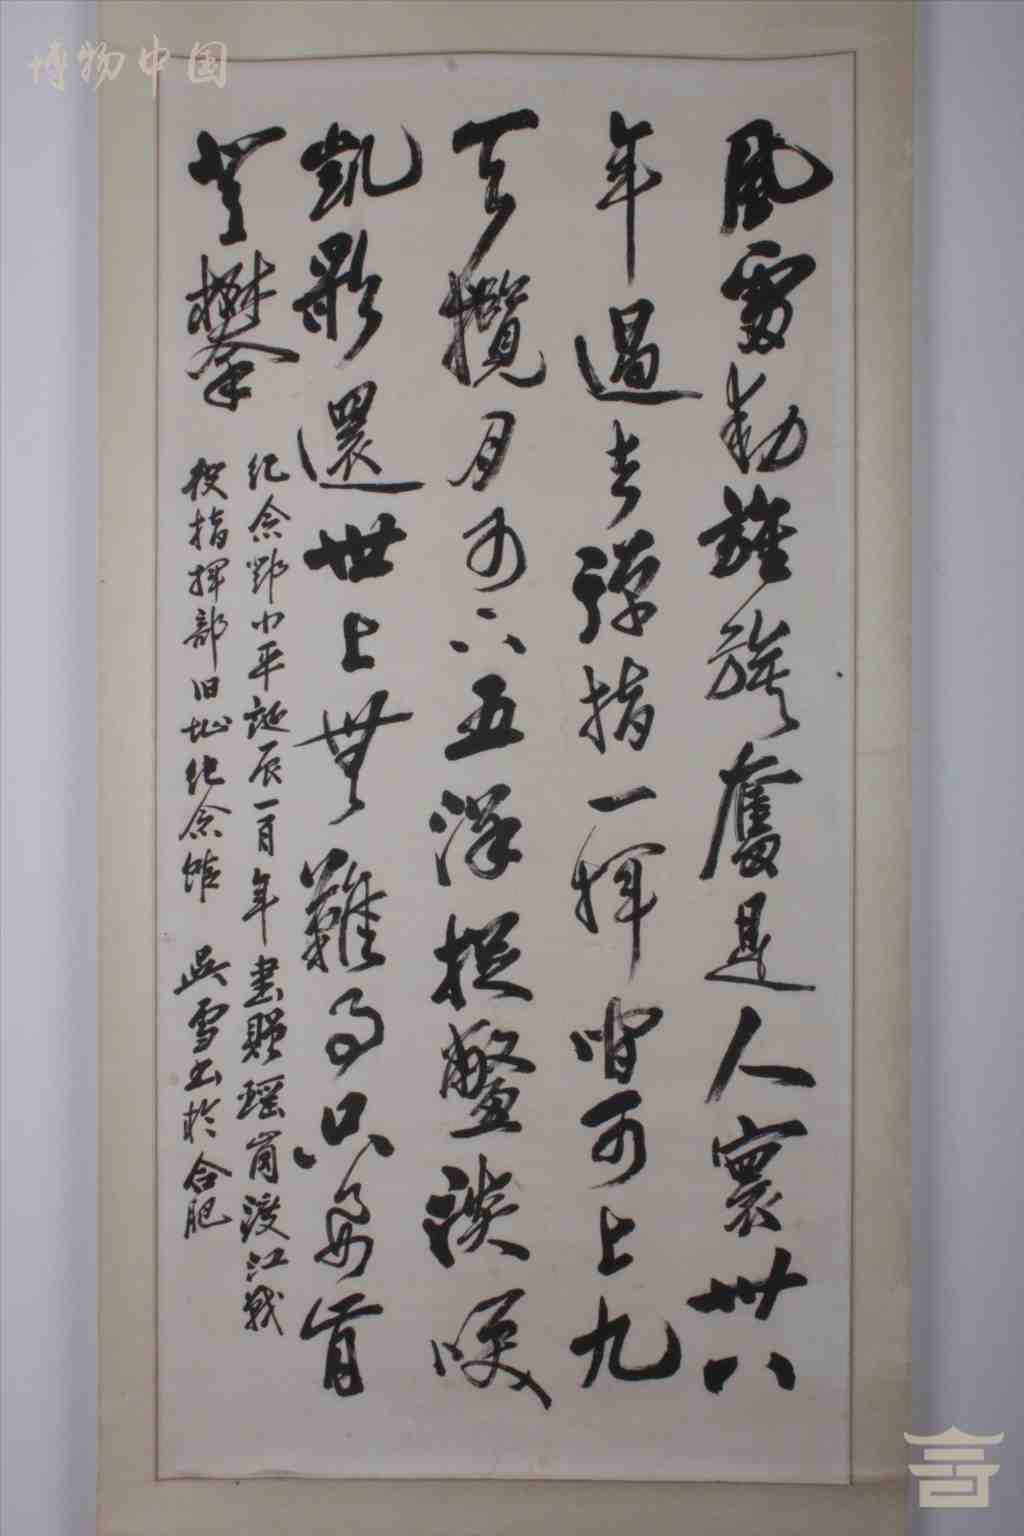 博物中国
風雷動旌旗奮是人寰卅八
年過去彈指一揮間可上九
天攬月可下五洋捉鱉談咲
凱歌還世上無難事只要肯
登攀
纪念鄧小平誕辰一百年書贈瑶崗渡江戰
役指揮部旧址纪念馆 吳雪书於合肥